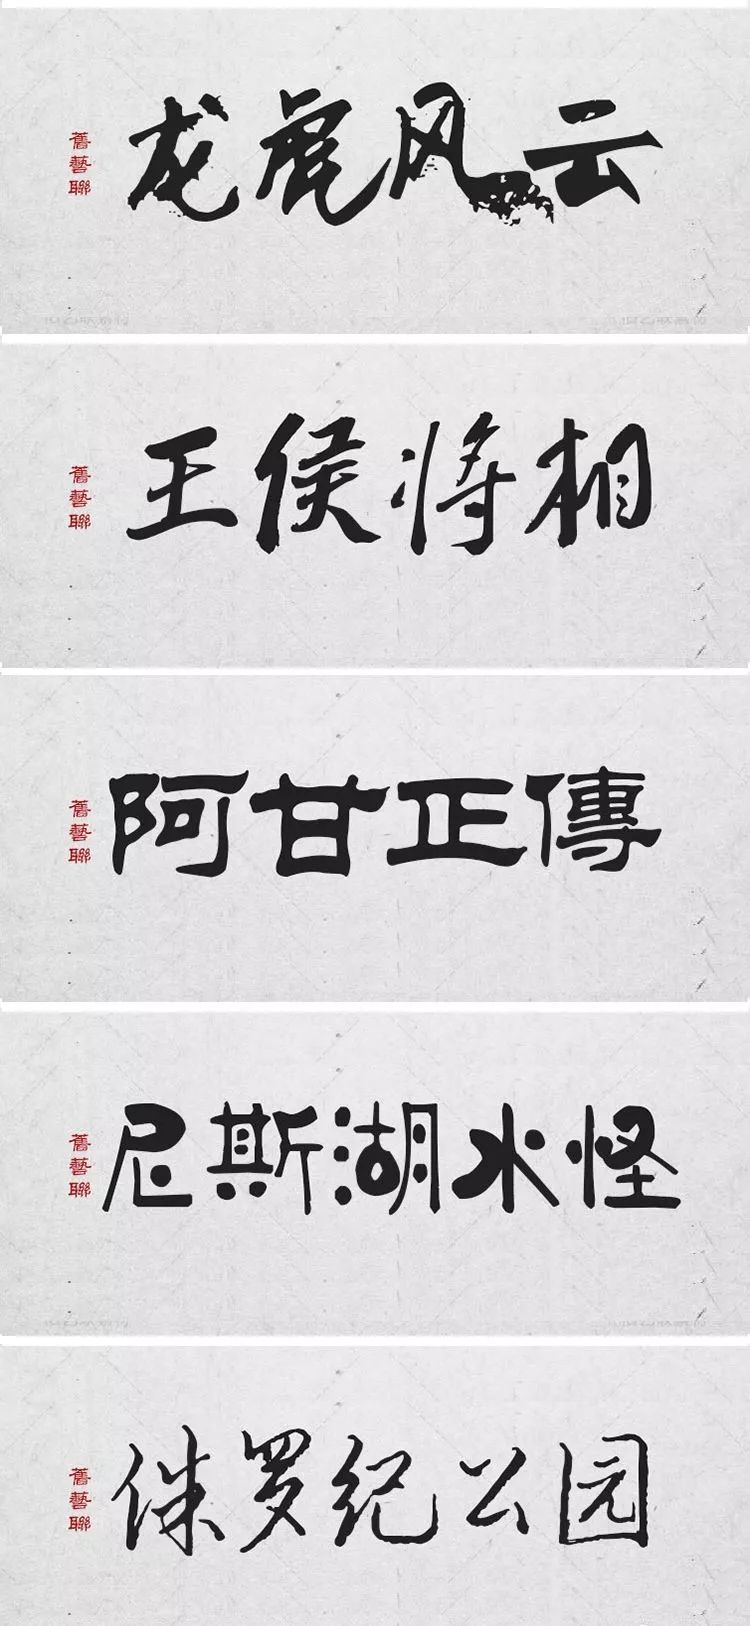 舊藝聯
龙虎风云
舊藝聯
王侯将相
舊藝聯
阿甘正傳
舊藝聯
尼斯湖水怪
舊藝聯
侏罗纪公园